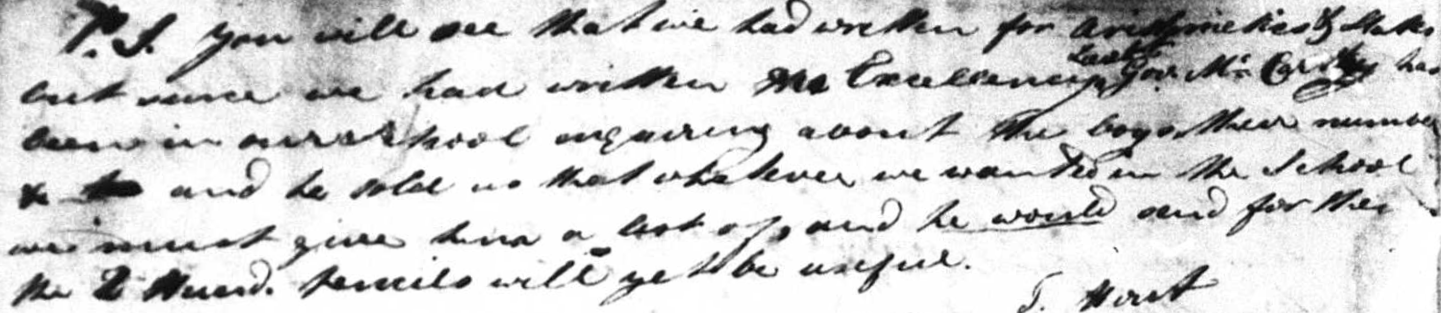 P.S. You will see that we had written for arithmeticks & Slates
but since we had written his Excellency Gov. Mc Carthy has
been in our school enquiring about the boys, their number
& and he told us that whatever we wanted in the School
we must give him a list of, and he would send for them
the 2 Hund. pencils will yet be useful.
J. Hirst